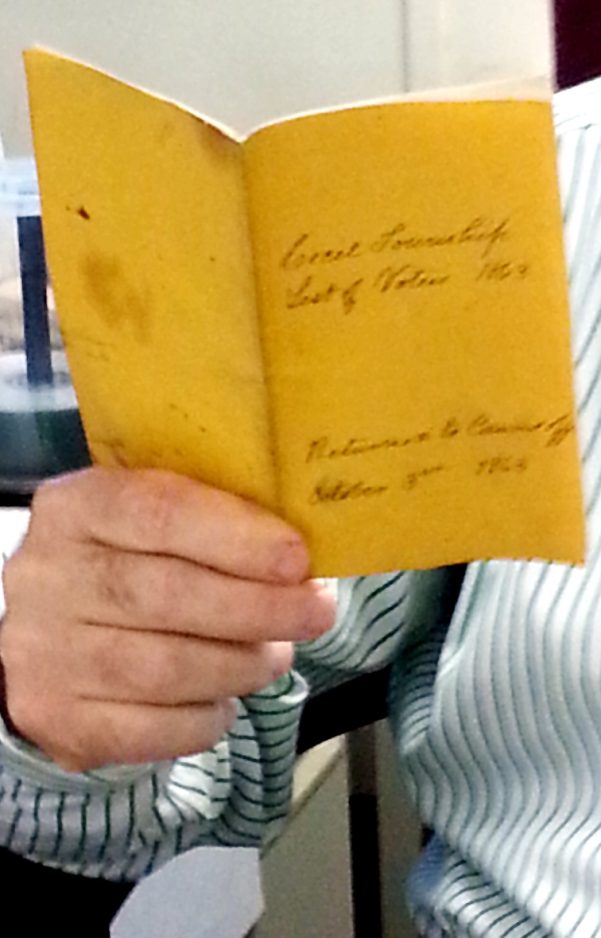 Cecil Township
List of Voters 1863
Returned to Comms off
October 3rd 1863